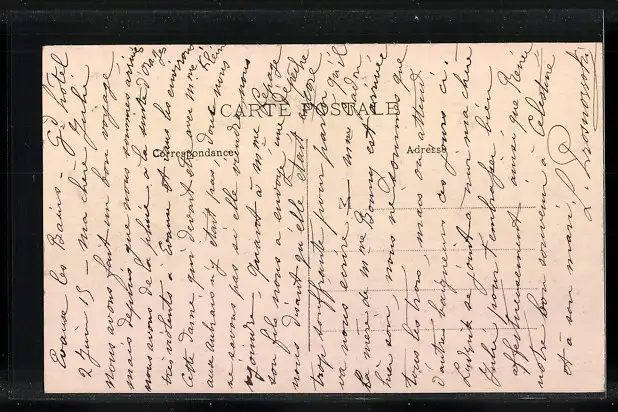 CARTE POSTALE
Correspondance
Adresse
Evaux les Bains - Gd hôtel
2 Juin 15 - ma chère Julie
nous avons fait un bon voyage
mais depuis que nous sommes arrivés
nous avons de la pluie à la suite d'orages
très violents à Evaux et dans les environs
Cette dame qui devait être avec mme
aux aubrais n'y était pas donc nous
ne savons pas si elle viendra nous
rejoindre. Quant à mme
son fils nous a envoyé une
nous disant qu'elle était encore
trop souffrante pour partir qu'il
va nous écrire - mme
la mère de mme Bonny est arrivée
hier soir nous ne sommes que
tous les trois mais on attend
d'autres baigneurs ces jours ci.
se joint à moi ma chère
Julie pour t'embrasser bien
affectueusement ainsi que René
notre bon souvenir à Célestine
et à son mari
L.